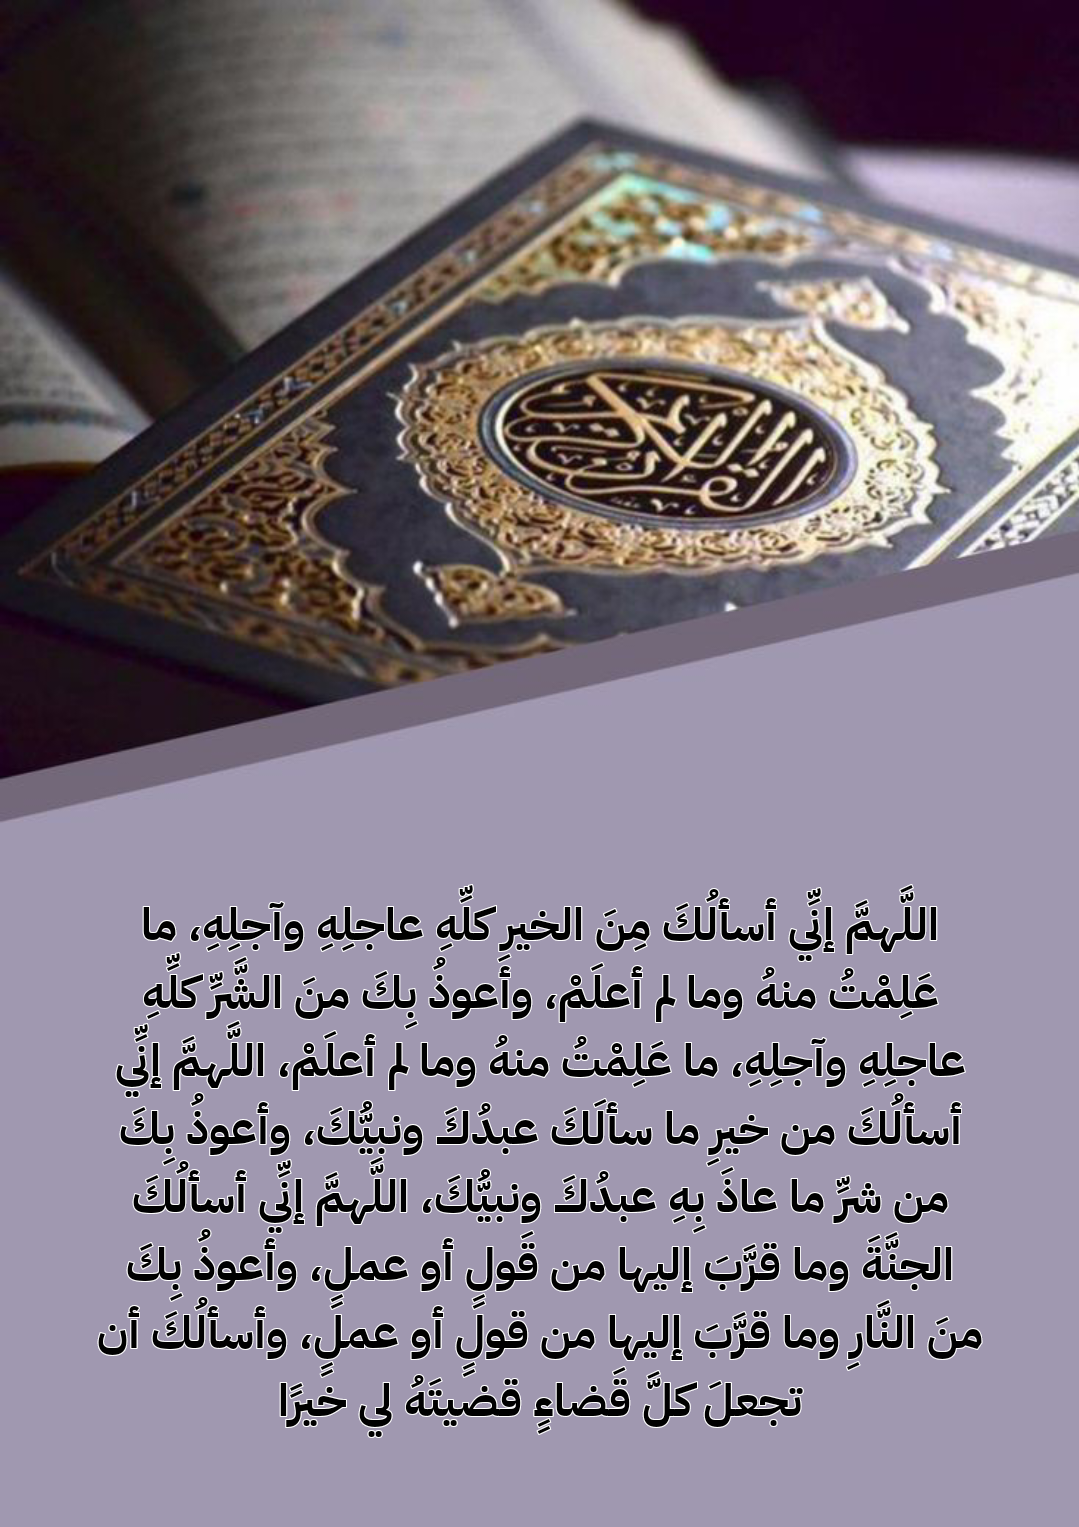 القرآن الكريم
اللَّهمَّ إنِّي أسألُكَ مِنَ الخيرِ كلِّهِ عاجلِهِ وآجلِهِ، ما
عَلِمْتُ منهُ وما لم أعلَمْ، وأعوذُ بِكَ منَ الشَّرِّ كلِّهِ
عاجلِهِ وآجلِهِ، ما عَلِمْتُ منهُ وما لم أعلَمْ، اللَّهمَّ إنِّي
أسألُكَ من خيرِ ما سألَكَ عبدُكَ ونبيُّكَ، وأعوذُ بِكَ
من شرِّ ما عاذَ بِهِ عبدُكَ ونبيُّكَ، اللَّهمَّ إنِّي أسألُكَ
الجنَّةَ وما قرَّبَ إليها من قَولٍ أو عملٍ، وأعوذُ بِكَ
منَ النَّارِ وما قرَّبَ إليها من قولٍ أو عملٍ، وأسألُكَ أن
تجعلَ كلَّ قَضاءٍ قضيتَهُ لي خيرًا